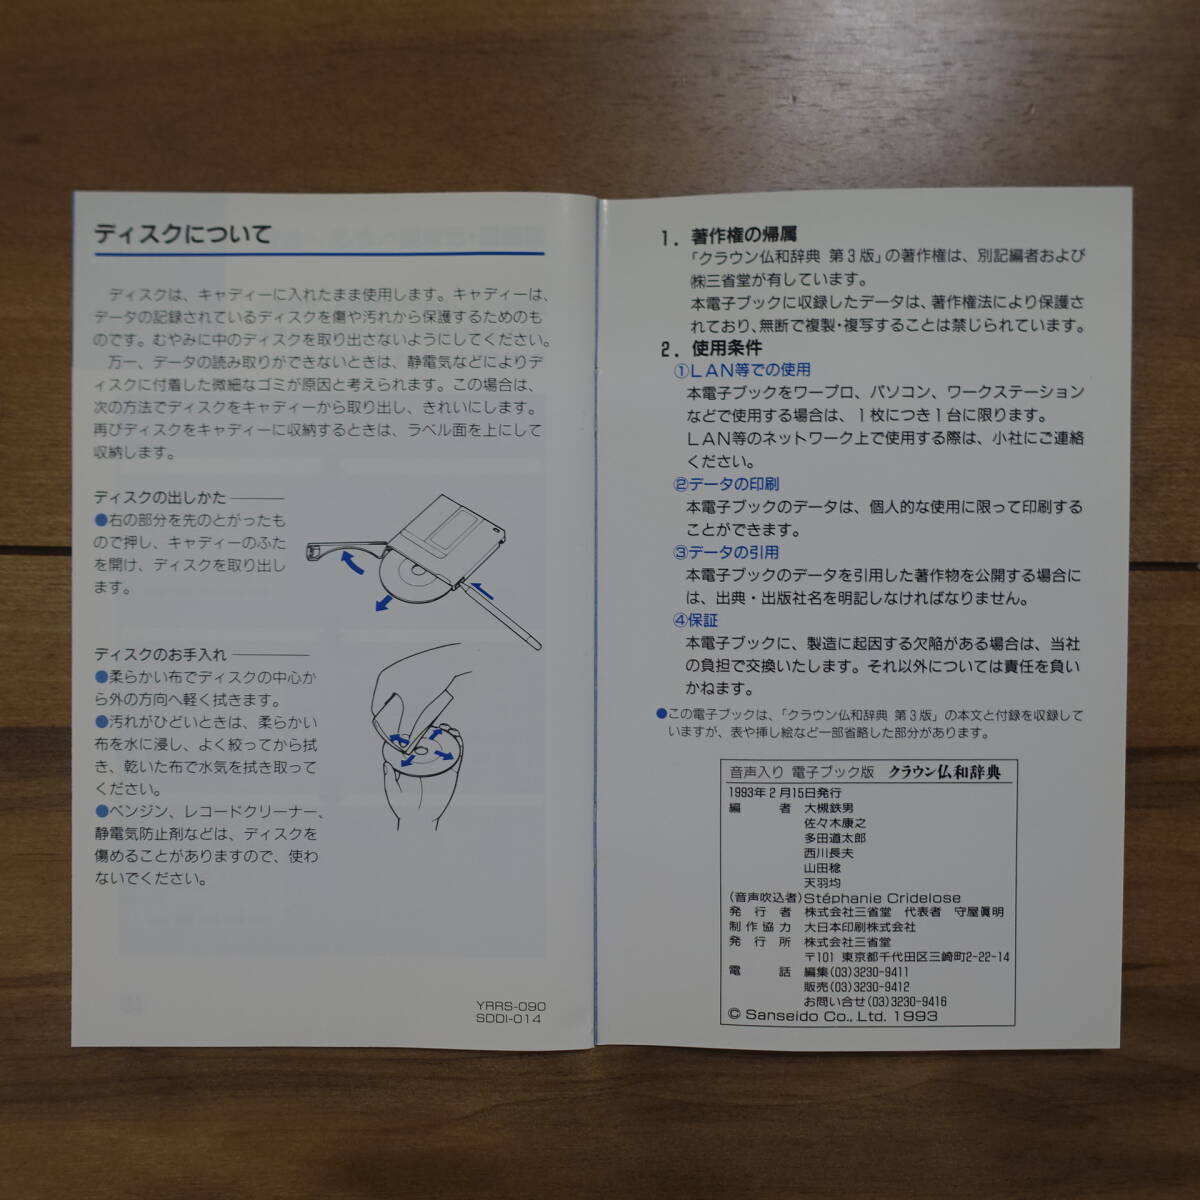 ディスクについて
ディスクは、キャディーに入れたまま使用します。キャディーは、
データの記録されているディスクを傷や汚れから保護するためのも
のです。むやみに中のディスクを取り出さないようにしてください。
万一、データの読み取りができないときは、静電気などによりデ
ィスクに付着した微細なゴミが原因と考えられます。この場合は、
次の方法でディスクをキャディーから取り出し、きれいにします。
再びディスクをキャディーに収納するときは、ラベル面を上にして
収納します。
ディスクの出しかた
●右の部分を先のとがったも
ので押し、キャディーのふた
を開け、ディスクを取り出し
ます。
ディスクのお手入れ
●柔らかい布でディスクの中心か
ら外の方向へ軽く拭きます。
●汚れがひどいときは、柔らかい
布を水に浸し、よく絞ってから拭
き、乾いた布で水気を拭き取って
ください。
●ベンジン、レコードクリーナー、
静電気防止剤などは、ディスクを
傷めることがありますので、使わ
ないでください。
YRRS-090
SDDI-014
1. 著作権の帰属
「クラウン仏和辞典 第3版」の著作権は、別記編者および
㈱三省堂が有しています。
本電子ブックに収録したデータは、著作権法により保護さ
れており、無断で複製・複写することは禁じられています。
2. 使用条件
①LAN等での使用
本電子ブックをワープロ、パソコン、ワークステーション
などで使用する場合は、1枚につき1台に限ります。
LAN等のネットワーク上で使用する際は、小社にご連絡
ください。
②データの印刷
本電子ブックのデータは、個人的な使用に限って印刷する
ことができます。
③データの引用
本電子ブックのデータを引用した著作物を公開する場合に
は、出典・出版社名を明記しなければなりません。
④保証
本電子ブックに、製造に起因する欠陥がある場合は、当社
の負担で交換いたします。それ以外については責任を負い
かねます。
●この電子ブックは、「クラウン仏和辞典 第3版」の本文と付録を収録して
いますが、表や挿し絵など一部省略した部分があります。
音声入り 電子ブック版 クラウン仏和辞典
1993年2月15日発行
編 者 大槻鉄男
佐々木康之
多田道太郎
西川長夫
山田稔
天羽均
(音声吹込者)Stéphanie Cridelose
発行者 株式会社三省堂 代表者 守屋眞明
制作協力 大日本印刷株式会社
発行所 株式会社三省堂
〒101 東京都千代田区三崎町2-22-14
電 話 編集(03)3230-9411
販売(03)3230-9412
お問い合せ(03)3230-9416
© Sanseido Co., Ltd. 1993